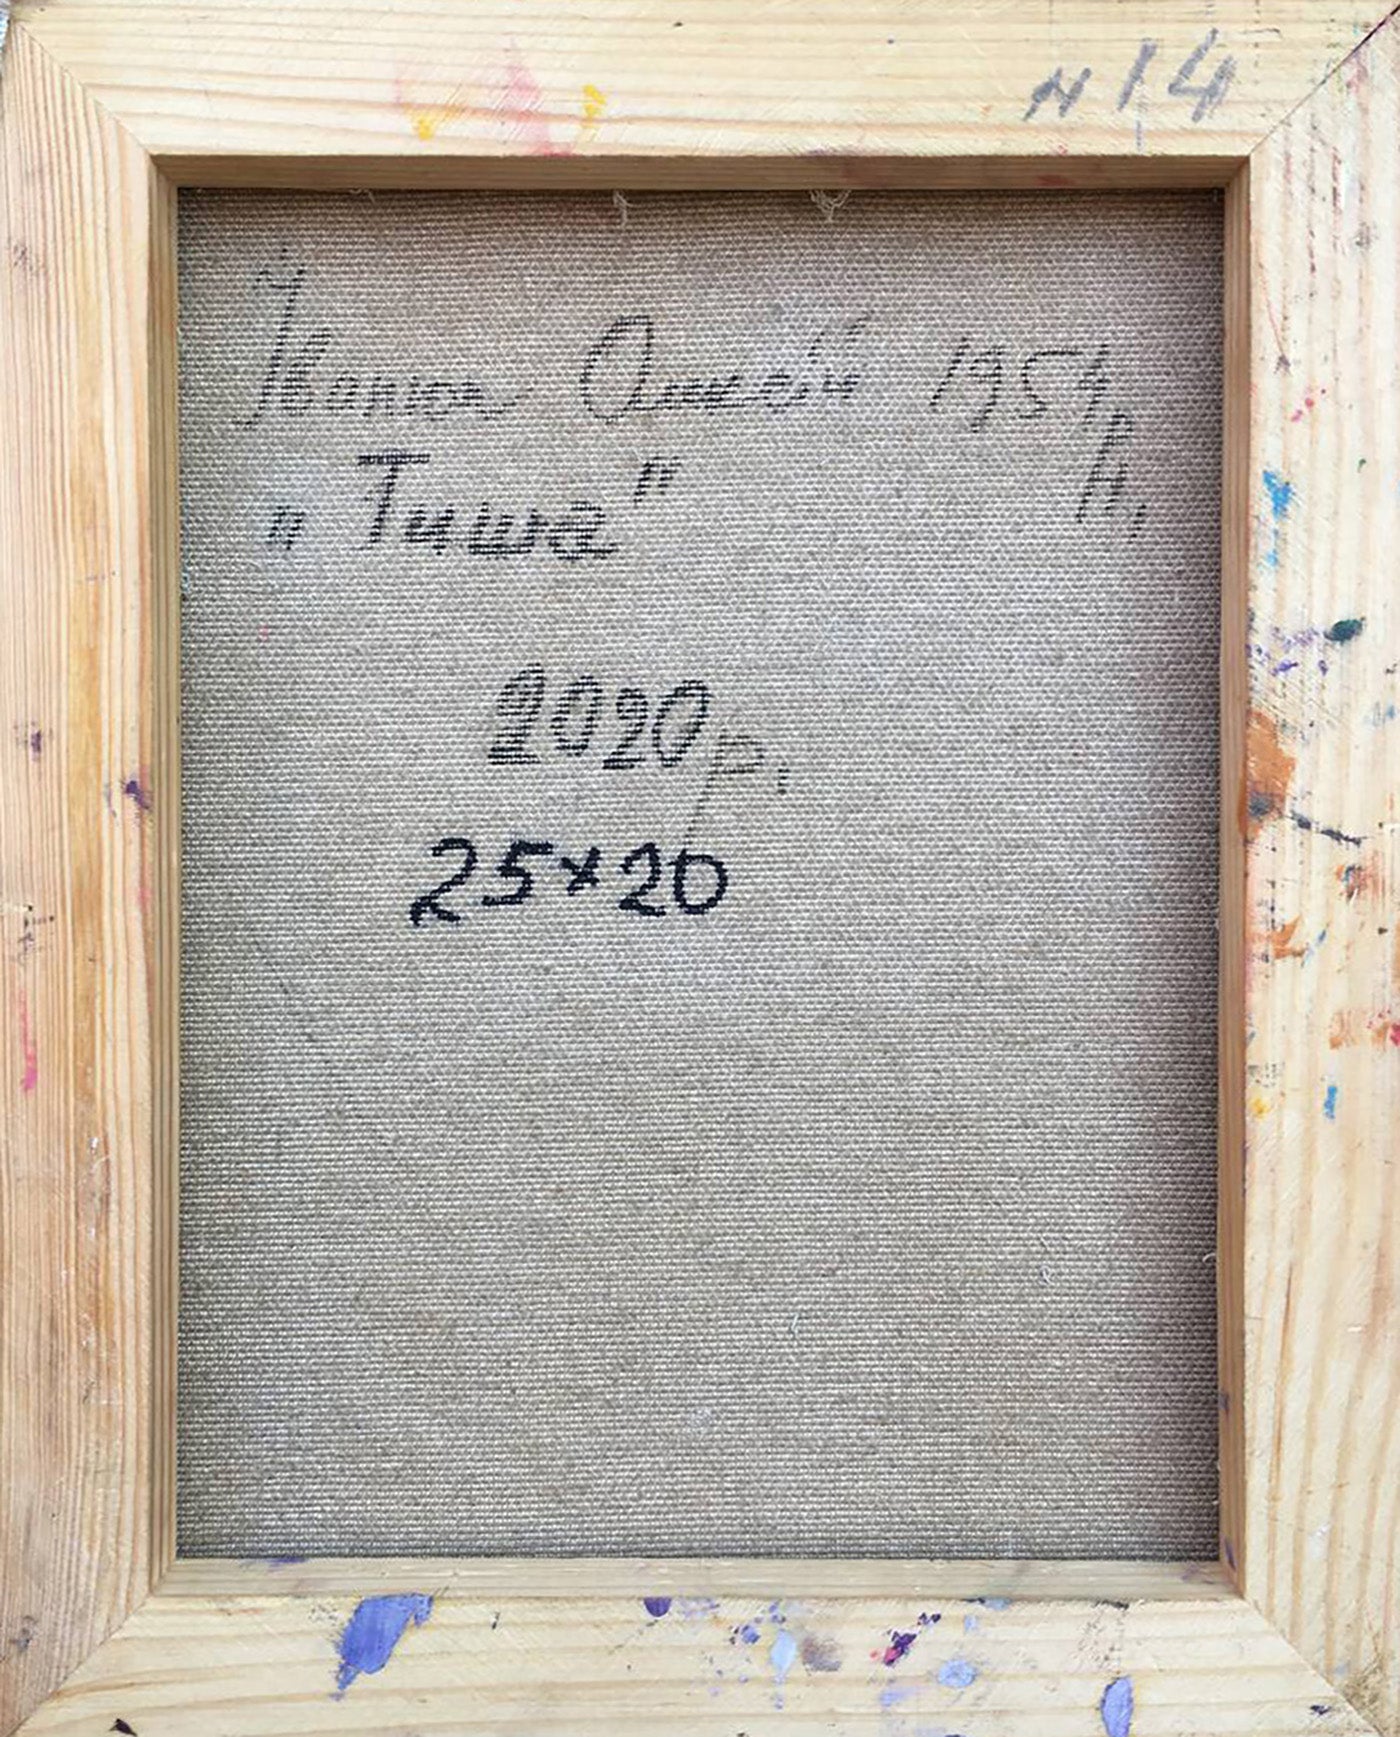 N 14
Іванюк Олексій 1954 р.
н.
„Тиша"
2020 р.
25×20